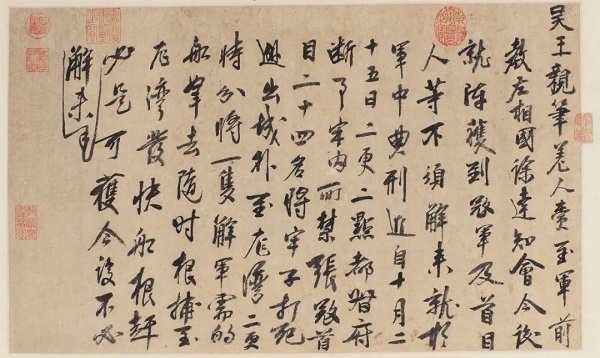 吴王親筆差人賫至軍前
教左相國徐達知會今後
就陣獲到寇軍及首目
人等不須解來就於
軍中典刑近自十月二
十五日二更二點都督府
断了牢内所禁張寇首
目二十四名將牢子打死
越出城外至龙灣二更
時分將一隻解軍需的
船拏去随时根捕至
龙灣發快船根赶
必是可獲今後不必
解来也